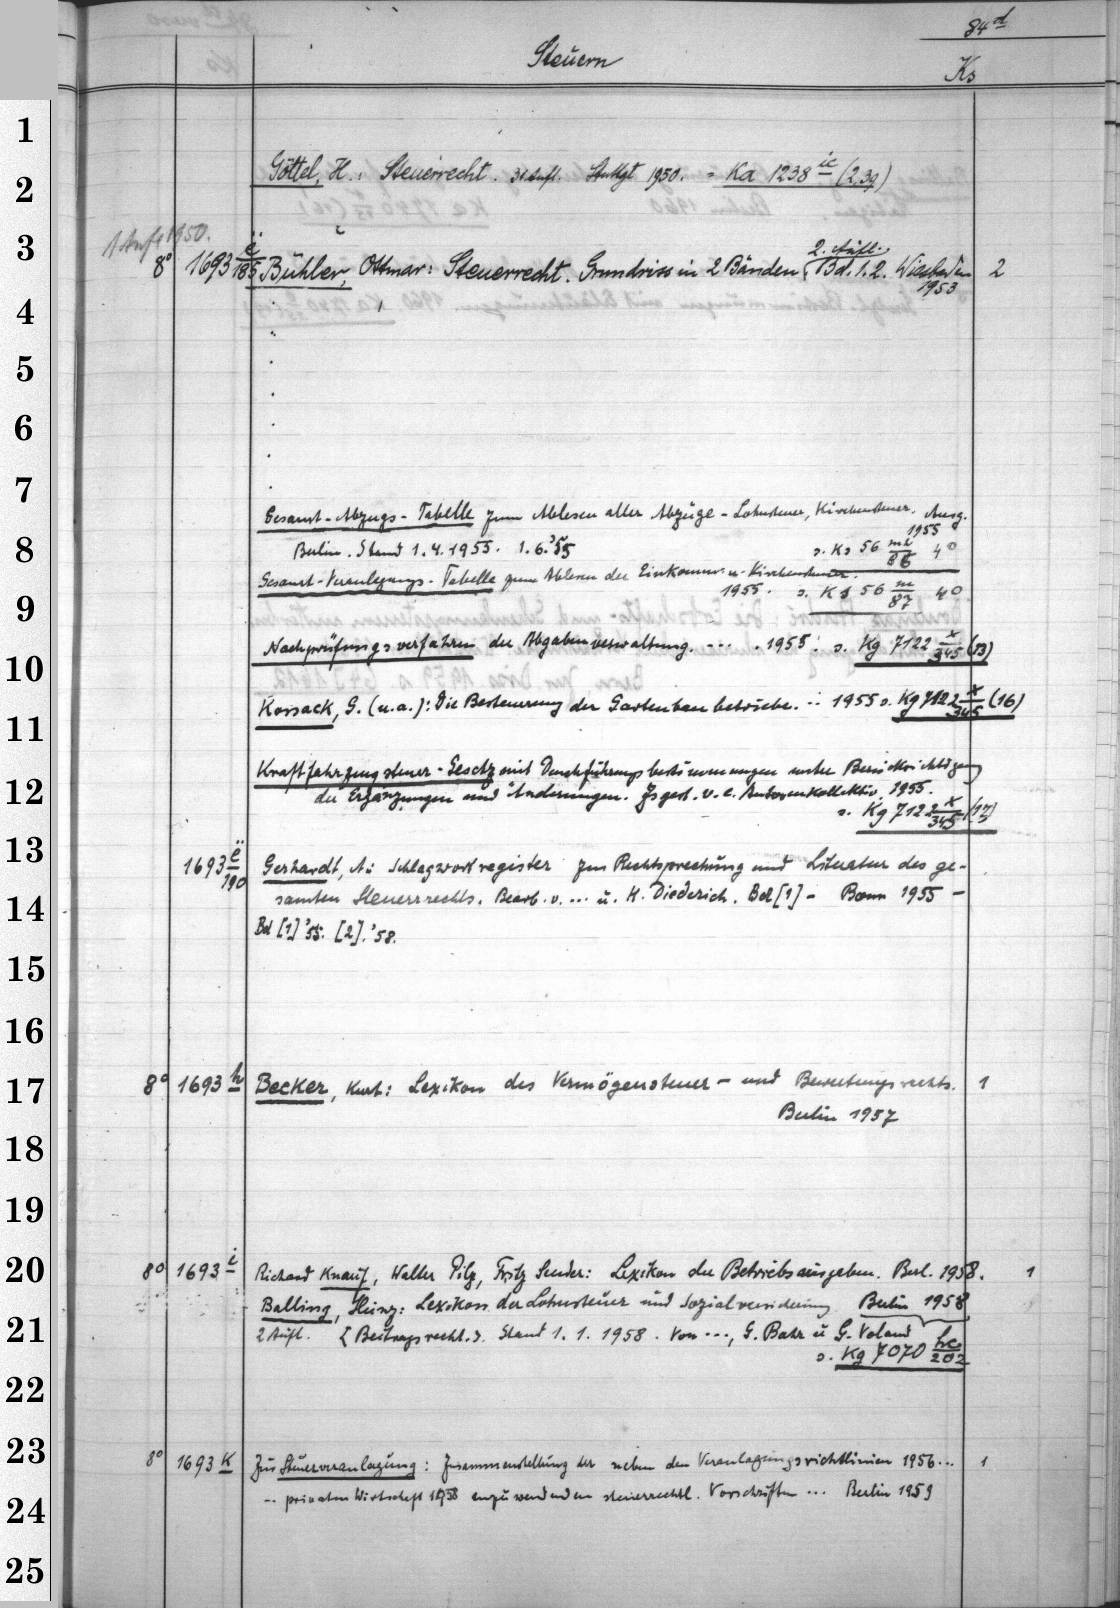 84d
Steuern
Ks
1
2
3
4
5
6
7
8
9
10
11
12
13
14
15
16
17
18
19
20
21
22
23
24
25
Göttel, H.: Steuerrecht. 31. Aufl. Stuttgt 1950. = Ka 1238 ic (2,39)
1 Aufl 1950.
8° 1693 ë/185 Bühler, Ottmar: Steuerrecht. Grundriss in 2 Bänden, 2. Aufl.. Bd. 1. 2. Wiesbaden 1953 2
Gesamt-Abzugs-Tabelle zum Ablesen aller Abzüge - Lohnsteuer, Kirchensteuer. Ausg. 1955
Berlin. Stand 1.4.1955. 1.6.'55 s. Ks 56 mi/86 4°
Gesamt-Veranlagungs-Tabelle zum Ablesen der Einkomm- u. Kirchensteuer.
1955. s. Ks 56 m/87 4°
Nachprüfungsverfahren der Abgabenverwaltung. ... . 1955. s. Kg 7122 x/345 (13)
Korsack, G. (u.a.): Die Besteuerung der Gartenbaubetriebe. .. 1955 s. Kg 7122 x/345 (16)
Kraftfahrzeugsteuer-Gesetz mit Durchführungsbestimmungen unter Berücksichtigung
der Ergänzungen und Änderungen. Zsgest. v. e. Autorenkollektiv, 1955.
s. Kg 7122 x/345 (17)
1693 ë/190 Gerhardt, A.: Schlagwortregister zur Rechtsprechung und Literatur des ge-
samten Steuerrechts. Bearb. v. ... u. H. Diederich. Bd [1] - Bonn 1955 -
Bd [1] '55. [2]. '58.
8° 1693 h Becker, Kurt: Lexikon des Vermögensteuer- und Bewertungsrechts. 1
Berlin 1957
8° 1693 i Richard Knauf, Walter Pilz, Fritz Sender: Lexikon der Betriebsausgaben. Berl. 1958. 1
Balling, Heinz: Lexikon der Lohnsteuer und Sozialversicherung Berlin 1958
2 Aufl. [Beitragsrecht.]. Stand 1.1.1958. Von ..., G. Bahr u G. Voland
s. Kg 7070 hc/202
8° 1693 k Zur Steuerveranlagung: Zusammenstellung der neben den Veranlagungsrichtlinien 1956... 1
.. privaten Wirtschaft 1958 anzuwendenden steuerrechtl. Vorschriften ... Berlin 1959